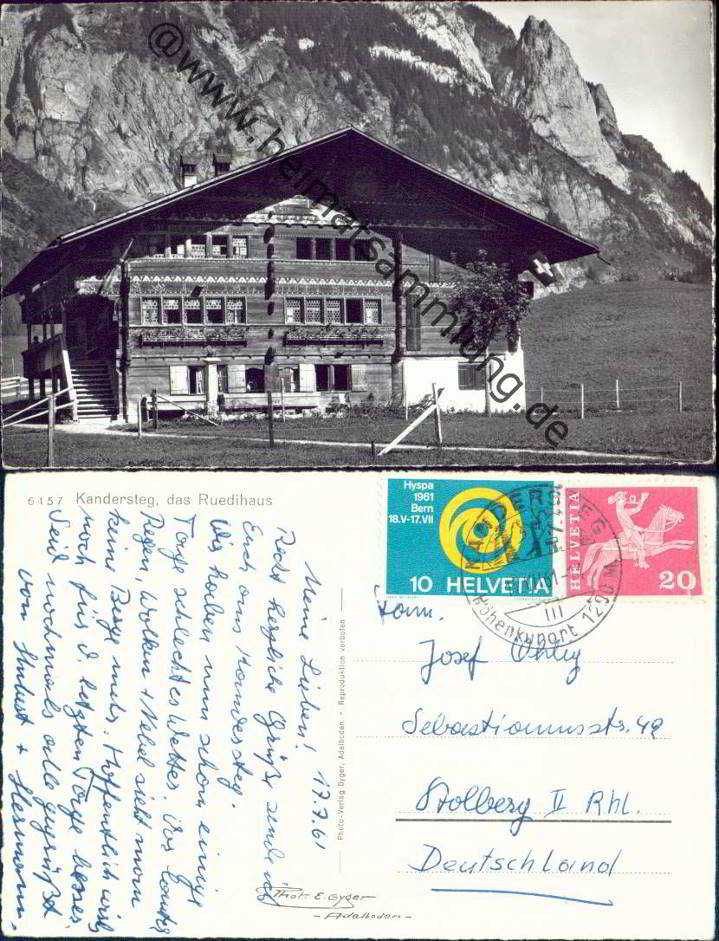 @www.heimatsammlung.de
6457 Kandersteg, das Ruedihaus
Meine Lieben! 17.7.61
Recht herzliche Grüße sende ich
Euch aus Kandersteg.
Wir haben nun schon einige
Tage schlechtes Wetter, lauter
Regen, Wolken + Nebel sieht man
keine Berge mehr. Hoffentlich wird's
noch für d. letzten Tage besser.
Seid nochmals alle gegrüßt
von + Hermann.
Photo-Verlag Gyger, Adelboden - Reproduktion verboten
Phot. E. Gyger
- Adelboden -
Hyspa
1961
Bern
18.V-17.VII
10 HELVETIA
HELVETIA
20
KANDERSTEG
Höhenkurort 1200 m
Fam.
Josef Ohley
Sebastianusstr. 49
Stolberg II Rhl.
Deutschland